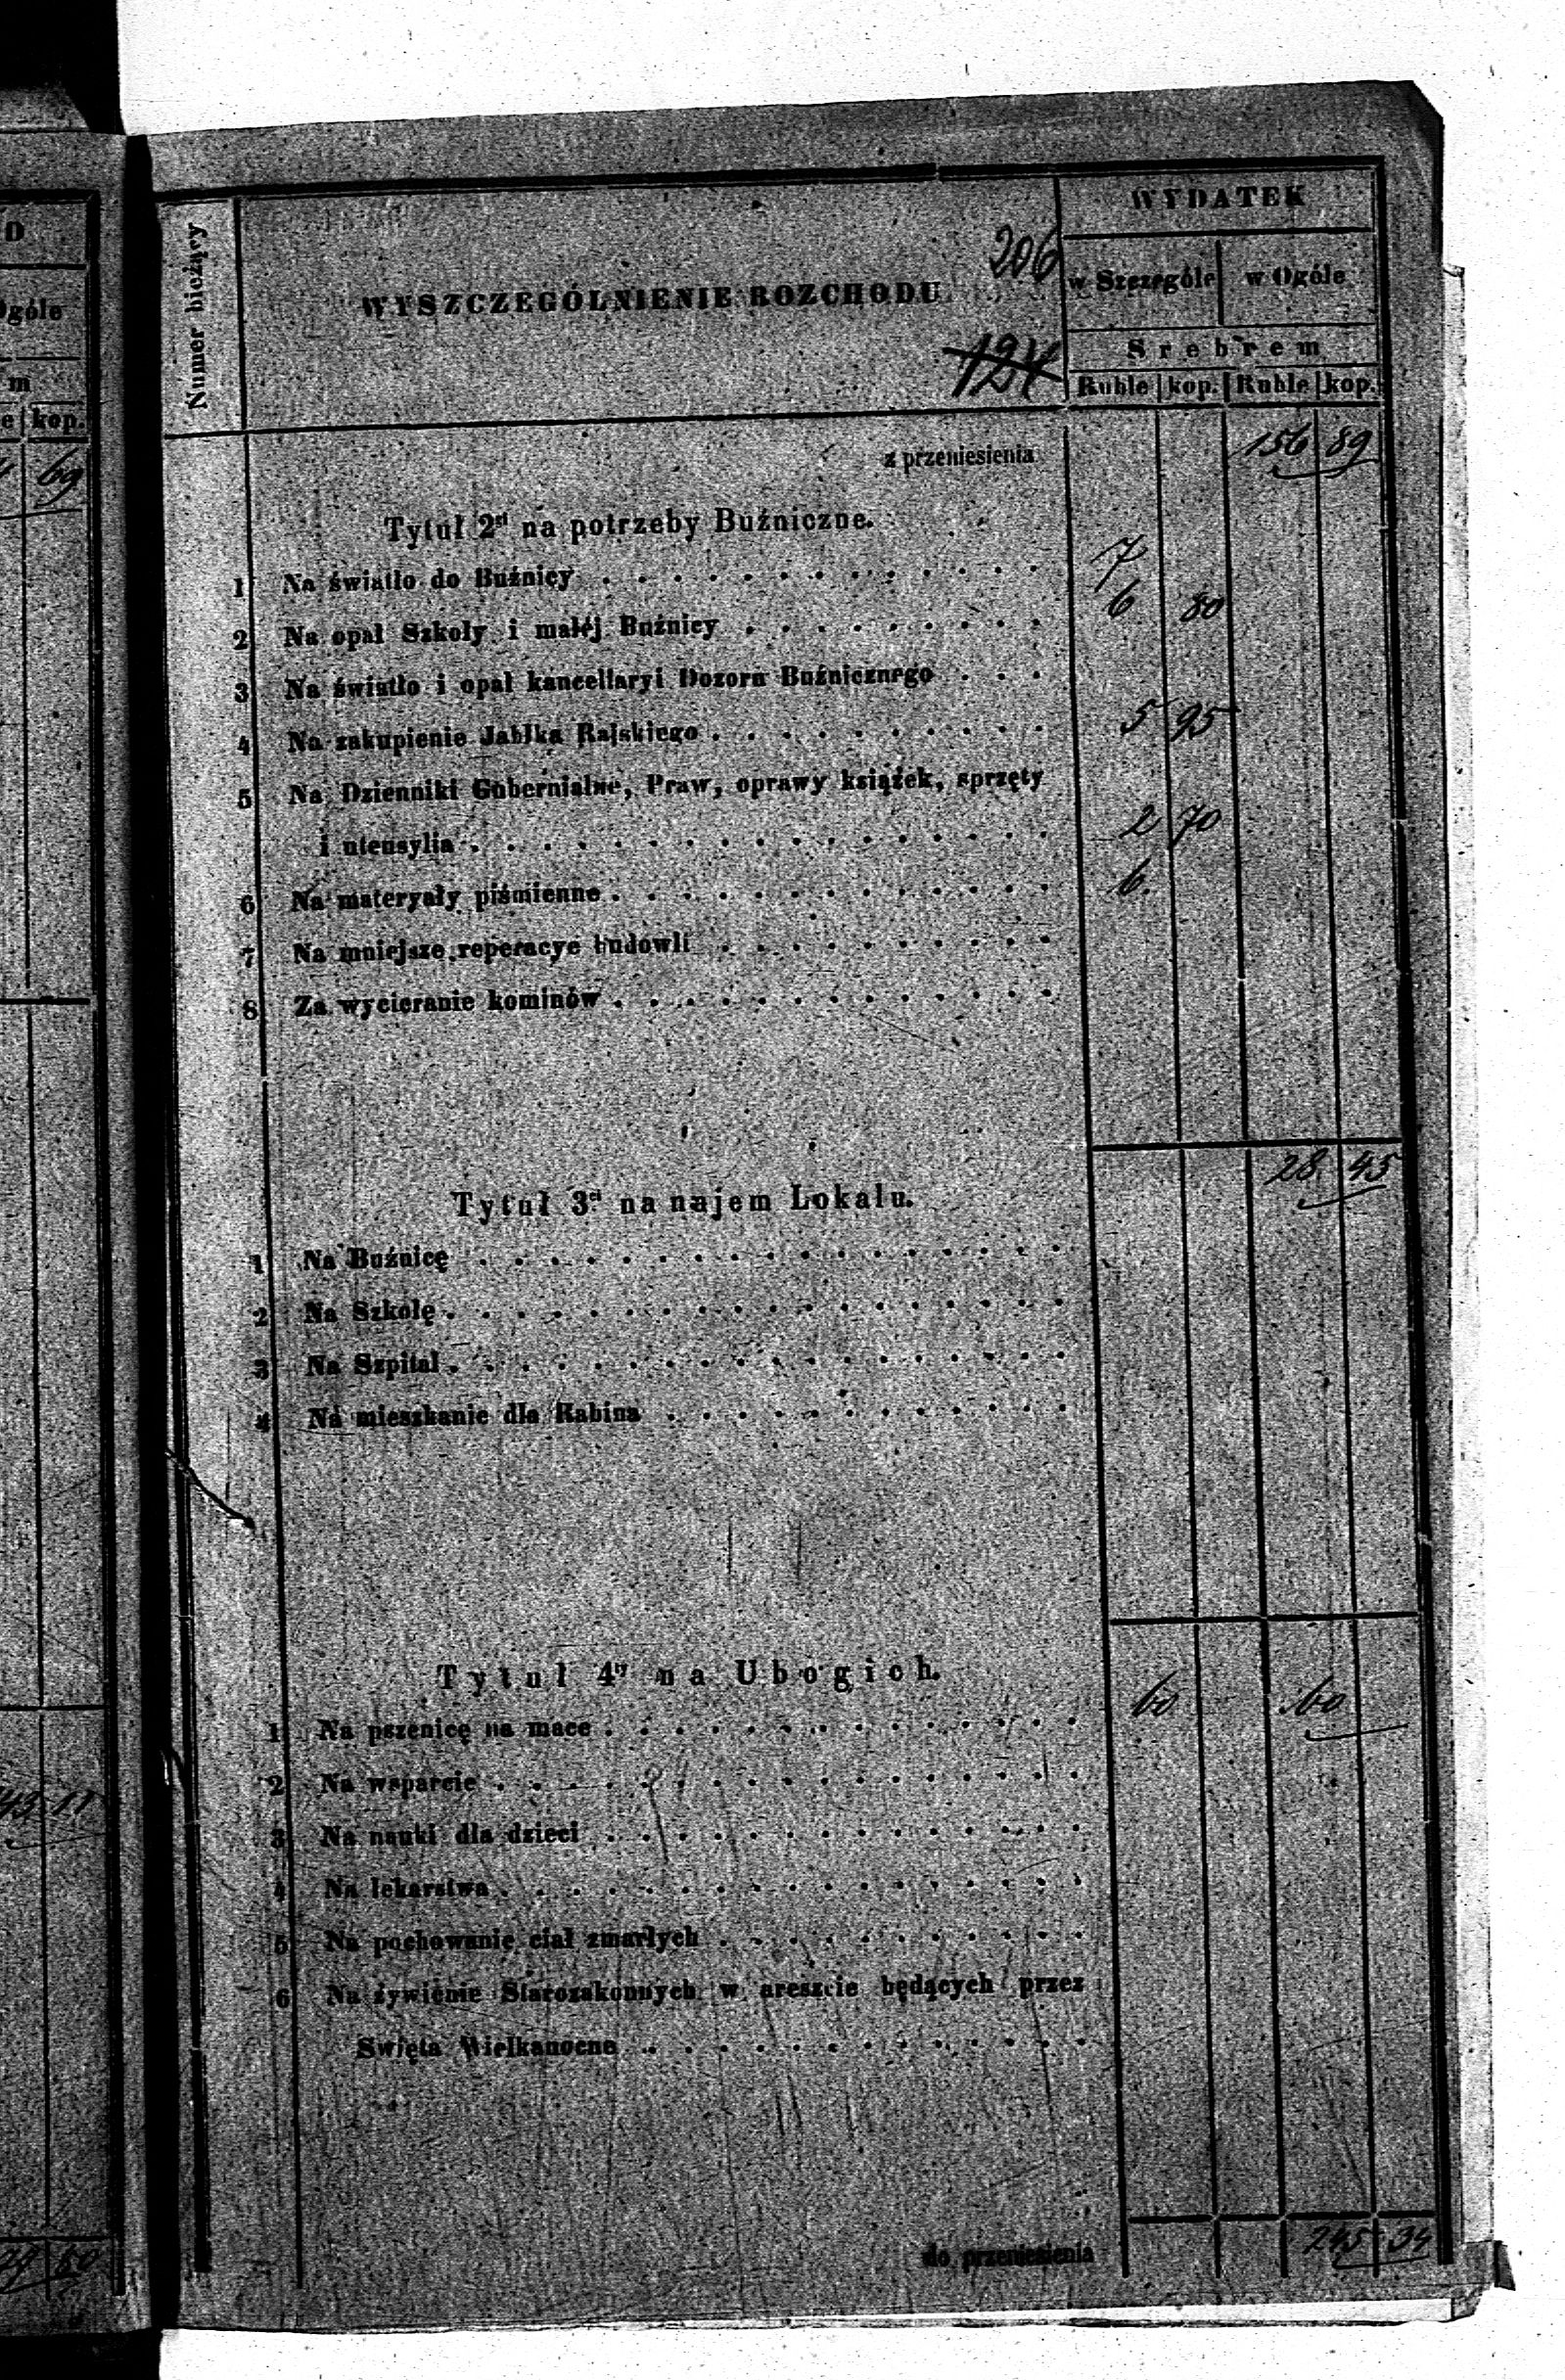 O
Ogóle
m
e kop.
69
43 11
29 50
Numer bieżący
WYSZCZEGÓLNIENIE ROZCHODU
206
124
WYDATEK
w Szczególe w Ogóle
Srebrem
Ruble kop. Ruble kop.
z przeniesienia 156 89
Tytuł 2gi na potrzeby Buźniczne.
1 Na światło do Buźnicy 7
2 Na opał Szkoły i małéj Buźnicy 6 80
3 Na światło i opał kancellaryi Dozoru Buźnicznego
4 Na zakupienie Jabłka Rajskiego 5 95
5 Na Dzienniki Gubernialne, Praw, oprawy książek, sprzęty
i utensylia 2 70
6 Na materyały piśmienne 6
7 Na mniejsze reperacye budowli
8 Za wycieranie kominów
28 45
Tytuł 3ci na najem Lokalu.
1 Na Buźnicę
2 Na Szkołę
3 Na Szpital
4 Na mieszkanie dla Rabina
Tytuł 4ty na Ubogich.
1 Na pszenicę na mace 60 60
2 Na wsparcie
3 Na nauki dla dzieci
4 Na lekarstwa
5 Na pochowanie ciał zmarłych
6 Na żywienie Starozakonnych w areszcie będących przez
Swięta Wielkanocne
do przeniesienia 245 34